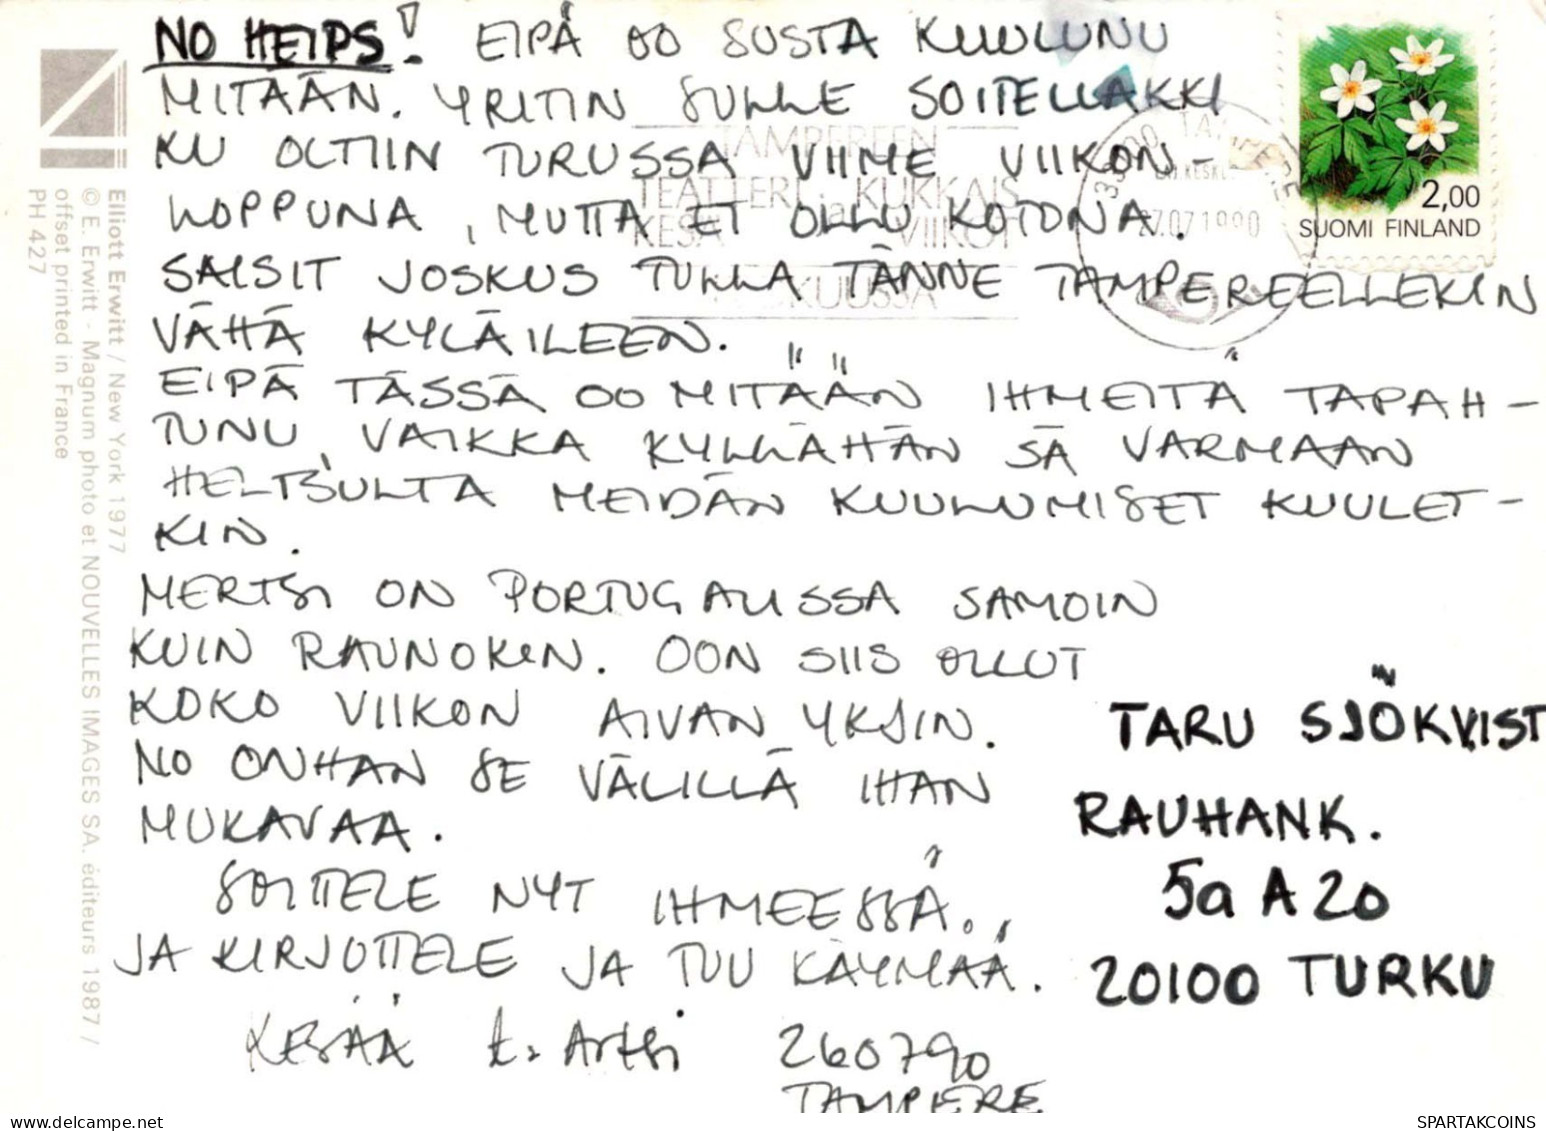 NO HEIPS! EIPÄ OO SUSTA KUULUNU
MITÄÄN. YRITIN SULLE SOITELLAKKI
KU OLTIIN TURUSSA VIIME VIIKON-
LOPPUNA, MUTTA ET OLLU KOTONA.
SAISIT JOSKUS TULLA TÄNNE TAMPEREELLEKIN
VÄHÄ KYLÄILEEN.
EIPÄ TÄSSÄ OO MITÄÄN IHMEITÄ TAPAH-
TUNU, VAIKKA KYLLÄHÄN SÄ VARMAAN
HELTSULTA MEIDÄN KUULUMISET KUULET-
KIN.
MERTSI ON PORTUGALISSA SAMOIN
KUIN RAUNOKIN. OON SIIS OLLUT
KOKO VIIKON AIVAN YKSIN.
NO ONHAN SE VÄLILLÄ IHAN
MUKAVAA.
SOITTELE NYT IHMEESSÄ.
JA KIRJOTTELE JA TUU KÄYMÄÄ.
KESÄÄ t. Artsi 260790
TAMPERE
TARU SJÖKVIST
RAUHANK.
5a A 20
20100 TURKU
2,00
SUOMI FINLAND
TAMPEREEN
TEATTERI ja KUKKAIS
KESÄ VIIKOT
KUUSSA
TAMPERE
27.07.1990
Elliott Erwitt / New York 1977
© E. Erwitt - Magnum photo et NOUVELLES IMAGES SA. éditeurs 1987 /
offset printed in France
PH 427
SPARTAKCOINS
www.delcampe.net